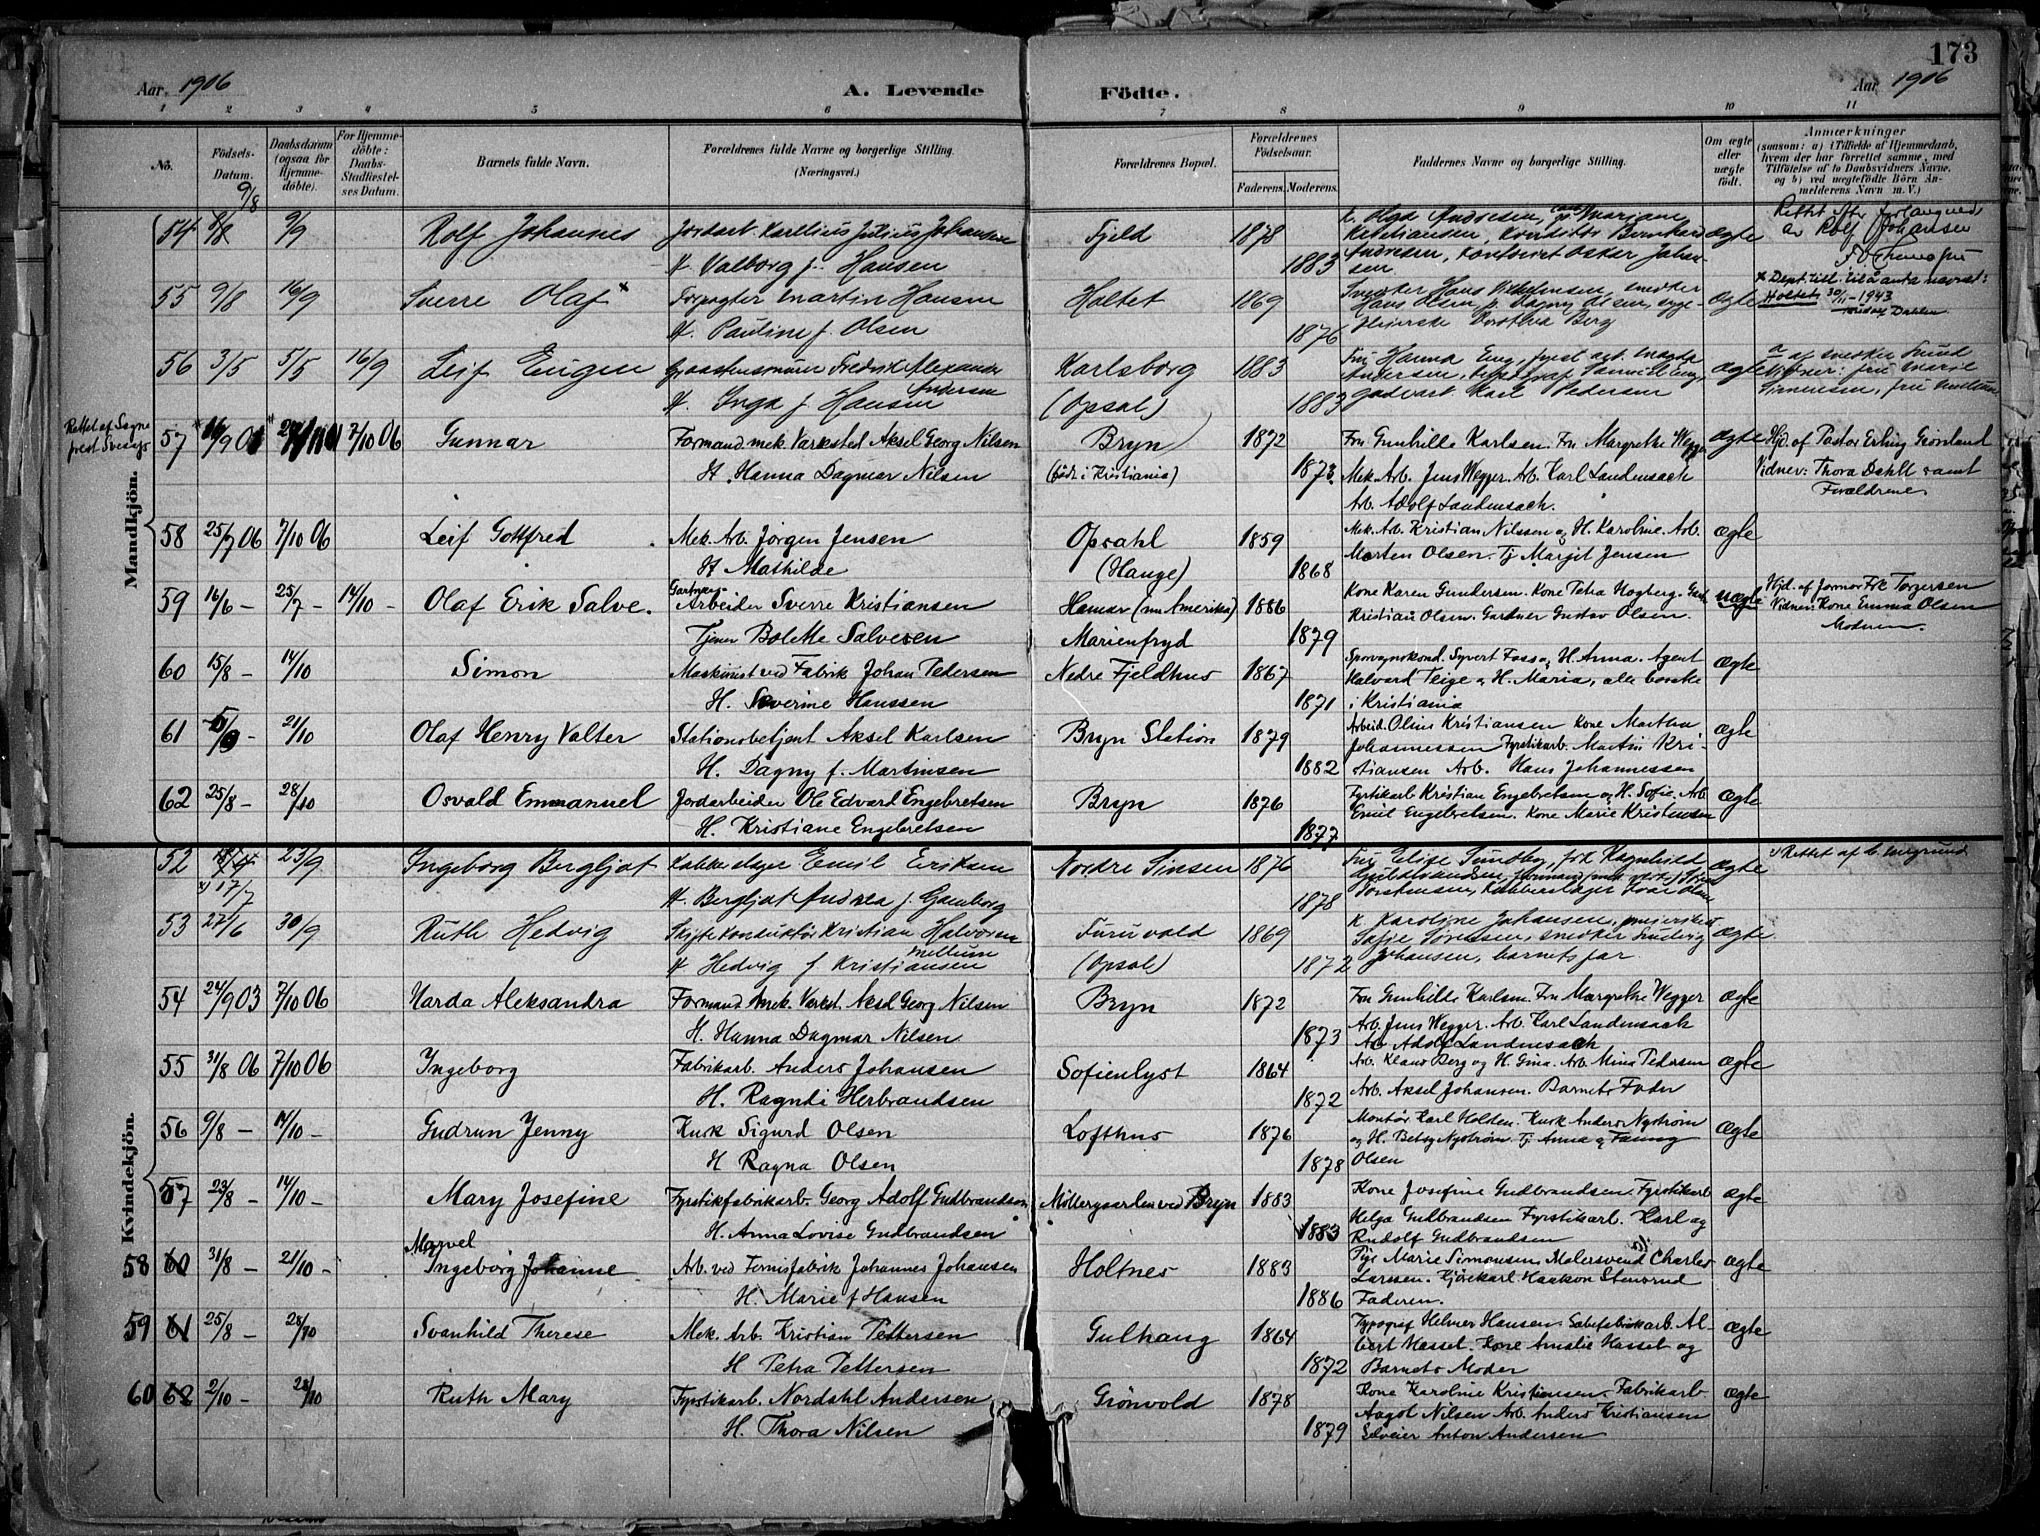 173
Aar 1906
A. Levende
Födte.
Aar 1906
1 2 3 4 5 6 7 8 9 10 11
No.
Födsels-Datum.
Daabsdatum (ogsaa for Hjemme-döbte).
For Hjemme-döbte: Daabs-Stadfæstel-ses Datum.
Barnets fulde Navn.
Forældrenes fulde Navne og borgerlige Stilling. (Næringsvei.)
Forældrenes Bopæl.
Forældrenes Födselsaar. Faderens. Moderens.
Faddernes Navne og borgerlige Stilling.
Om ægte eller uægte födt.
Anmærkninger (saasom: a) i Tilfælde af Hjemmedaab, hvem der har forrettet samme, med Tilföielse af to Daabsvidners Navne, og b) ved uægtefödte Börn An-melderens Navn m. V.)
Mandkjön.
9/8
54 9/9 Rolf Johannes Jordarb. Karelius Julius Johansen Fjeld 1878 Olga Andresen, Mariane ægte
H. Valborg f. Hansen 1883 Kristiansen, Konditor Bernhard Andresen, Kontorist Oskar Johan-sen
av Rolf Johansen
55 9/8 16/9 Sverre Olaf x Forpagter Martin Hansen Holtet 1869 Snedker Hans Vilhelmsen, snedker ægte
H. Pauline f. Olsen 1876 Hans Olsen, p. Dagny Olsen, syge-pleierske Dorothea Berg
x Dept. till. til å anta navnet: Holtet 30/11-1943
56 3/5 5/5 16/9 Leif Eugen Fredrik Alexander Andersen Karlsborg (Opsal) 1883 Fru Hanna Eng, ægte
H. Inga f. Hansen 1883 Andersen, gadvart Karl Pedersen
Rettet af Sogne prest
57 7/10 06 Gunnar Formand mek. Værksted Aksel Georg Nilsen Bryn 1872 Fru Gunhilde Karlsen. Fru Margrethe Wegger ægte Hjd. af Pastor Erling Grönland
H. Hanna Dagmar Nilsen (födt i Kristiania) 1873 Mek. Arb. Jens Wegger. Arb. Karl Landensach Vidner: Thora Dahll samt
Arb. Adolf Landensach. Forældrene
58 25/7 06 7/10 06 Leif Gottfred Mek. Arb. Jörgen Jensen Opsahl 1859 Mek. Arb. Kristian Nilssen og H. Karoline. Arb. ægte
H Mathilde (Hauge) 1868 Morten Olsen. Tj. Margit Jensen
59 16/6 - 25/7 - 14/10 - Olaf Erik Salve. Gartner Arbeider Sverre Kristiansen Hamar (nu Amerika) 1886 Kone Karen Gundersen. Kone Petra Hogberg. uægte Hjd. af Jormor Frk Torgersen
Tjener Bolette Salvesen Marienfryd 1879 Kristian Olsen. Gartner Gustav Olsen. Vidner: Kone Emma Olsen
Moderen.
60 15/8 - 14/10 Simon Maskinist ved Fabrik Johan Pedersen Nedre Fjeldhus 1867 Sporvognskond. Syvert Foss og H. Anna. Agent ægte
H. Severine Hanssen 1871 Halvard Teige og H. Maria, alle borske i Kristiania
61 21/10 Olaf Henry Valter Stationsbetjent Aksel Karlsen Bryn Station 1879 Arbeid. Olius Kristiansen Kone Martha ægte
H. Dagny f. Martinsen 1882 Johannessen Fyrstikarb. Martin Kri-stiansen Arb. Hans Johannessen
62 25/8 - 28/10 Osvald Emmanuel Jordarbeider Ole Edvard Engebretsen Bryn 1876 Fyrstikarb Kristian Engebretsen og H. Sofie. Arb ægte
H. Kristiane Engebretsen 1877 Emil Engebretsen. Kone Marie Kristensen
Kvindekjön.
52 17/7 23/9 Ingeborg Bergljot Emil Eriksen Nordre Sinsen 1876 Fru Elise Sundby, frk Ragnhild ægte Rettet af
H. Bergljot Andrea f. Gamborg 1878
53 22/6 30/9 Ruth Hedvig Skiftekonduktör Kristian Halvorsen Mellum Furuvold 1869 K. Karoline Johansen, meierske ægte.
H Hedvig f Kristiansen (Opsal) 1872 Sofie Sörensen, snedker Ludvig Johansen, barnets far.
54 24/9 03 7/10 06 Harda Aleksandra Formand Mek. Værkst. Aksel Georg Nilsen Bryn 1872 Fru Gunhilde Karlsen. Fru Margrethe Wegger ægte
H. Hanna Dagmar Nilsen 1873 Arb. Jens Wegger. Arb. Karl Landensach Arb Adolf Landensach
55 31/8 06 7/10 06 Ingeborg Fabrikarb. Anders Johansen Sofienlyst 1864 Arb. Klaus Berg og H. Gina. Arb. Mina Pedersen ægte
H. Ragndi Herbrandsen 1872 Arb. Aksel Johansen. Barnets Fader
56 9/8 - 14/10 - Gudrun Jenny Kusk Sigurd Olsen Lofthus 1876 Montör Karl Holten. Kusk Anders Nyström ægte
H Ragna Olsen 1878 og H. Betsy Nyström. Tj. Anna og Fanny Olsen
57 23/8 - 14/10 - Mary Josefine Fyrstikfabrikarb. Georg Adolf Gudbrandsen Möllergaarden ved Bryn 1883 Kone Josefine Gudbrandsen. Fyrstikarb ægte
H. Anna Lovise Gudbrandsen 1883 Helga Gudbrandsen Fyrstikarb. Karl og Rudolf Gudbrandsen
58 60 31/8 - 21/10 - Marvel Ingeborg Johanne Arb. ved Fernisfabrik Johannes Johansen Holtnes 1883 Pige Marie Simonsen Malersvend Charles ægte
H. Marie f Hansen 1886 Larssen. Kjörekarl Haakon Stensrud Faderen.
59 61 25/8 - 28/10 Svanhild Therese Mek. Arb. Kristian Pettersen Gulhaug 1864 Typograf Helmer Hansen. Sæbefabrikarb. Al- ægte
H Petra Pettersen 1872 bert Hasset. Kone Amalie Hasset og Barnets Moder
60 62 2/10 - 28/10 Ruth Mary Fyrstikarb. Nordahl Andersen Grönvold 1878 Kone Karoline Kristiansen. Fabrikarb. ægte
H. Thora Nilsen 1879 Aagot Nilsen Arb. Anders Kristiansen Anton Andersen